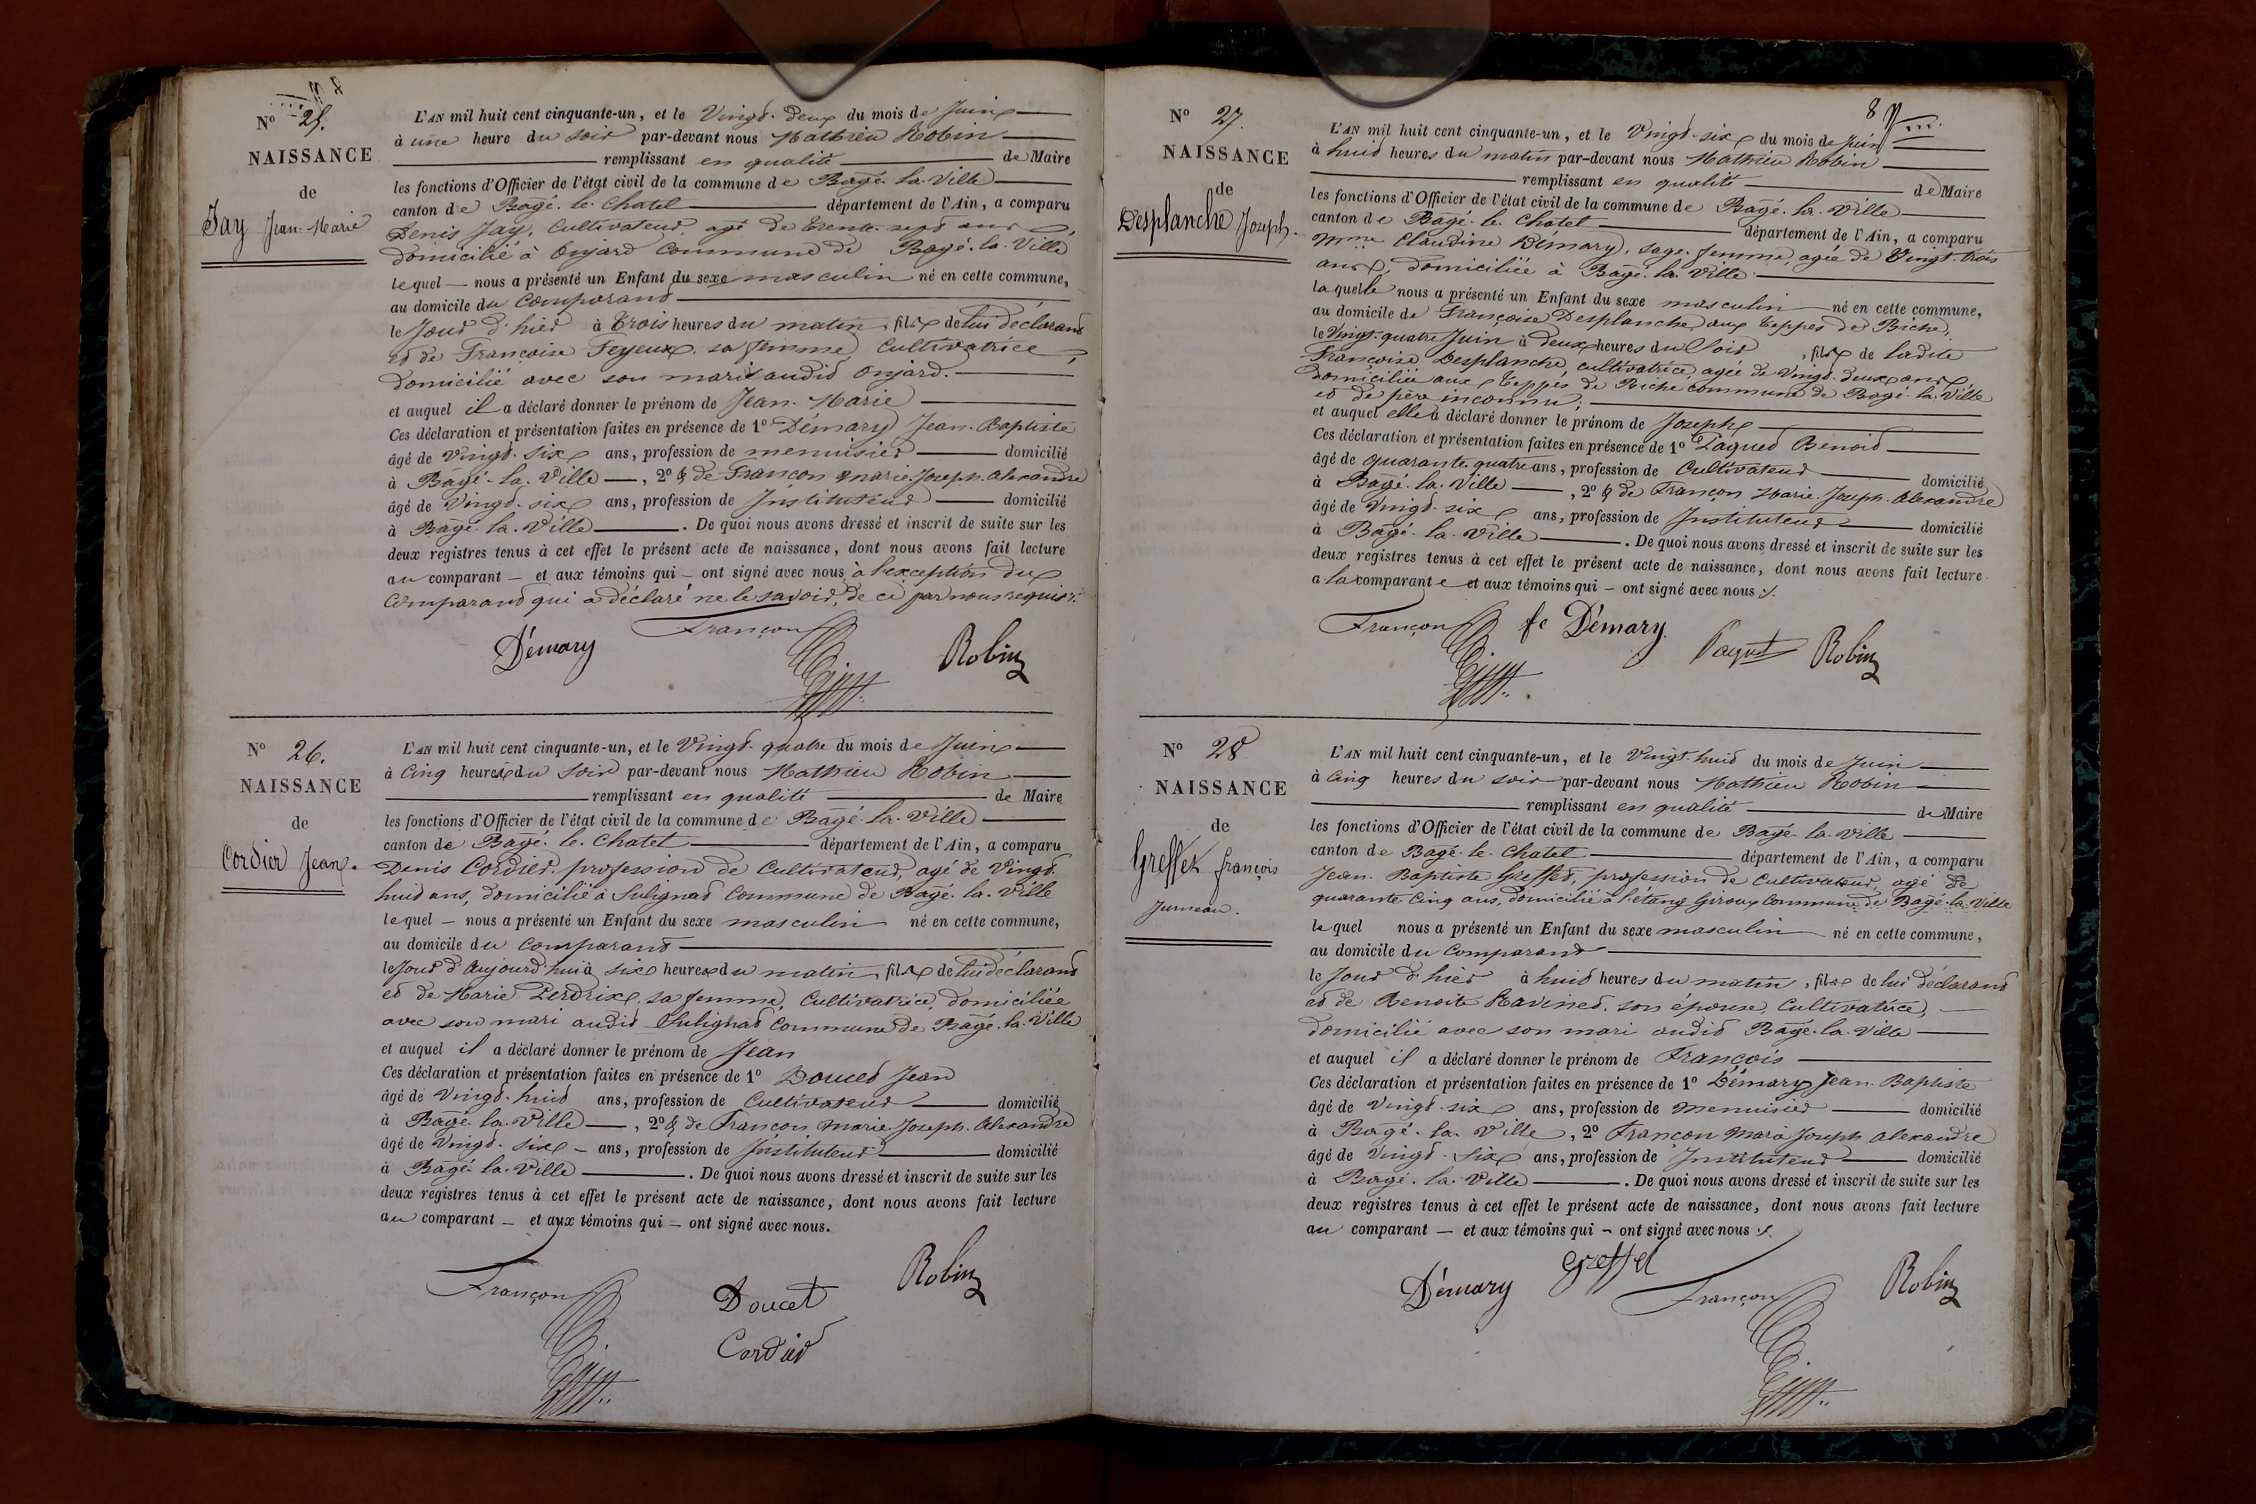 N° 25.
NAISSANCE
de
Jay Jean-Marie
L'AN mil huit cent cinquante-un, et le Vingt-deux du mois de Juin
à une heure du soir par-devant nous Mathieu Robin
remplissant en qualité de Maire
les fonctions d'Officier de l'état civil de la commune de Bagé-la-Ville
canton de Bagé-le-Chatel département de l'Ain, a comparu
Denis Jay, Cultivateur, agé de trente-sept ans,
domicilié à Onjard Commune de Bagé-la-Ville
lequel — nous a présenté un Enfant du sexe masculin né en cette commune,
au domicile du Comparant
le Jour d'hier à trois heures du matin, fils de lui déclarant
et de Françoise Feyeux, sa femme, Cultivatrice,
domicilié avec son mari audit Onjard.
et auquel il a déclaré donner le prénom de Jean-Marie
Ces déclaration et présentation faites en présence de 1° Démary Jean-Baptiste
âgé de Vingt-six ans, profession de menuisier domicilié
à Bagé-la-Ville —, 2° & de Françon Marie-Joseph-Alexandre
âgé de Vingt-six ans, profession de Instituteur domicilié
à Bagé-la-Ville. De quoi nous avons dressé et inscrit de suite sur les
deux registres tenus à cet effet le présent acte de naissance, dont nous avons fait lecture
au comparant — et aux témoins qui — ont signé avec nous à l'exception du
Comparant qui a déclaré ne le savoir, de ce par nous requis.
Démary Françon Robin
N° 26.
NAISSANCE
de
Cordier Jean.
L'AN mil huit cent cinquante-un, et le Vingt-quatre du mois de Juin
à Cinq heures du Soir par-devant nous Mathieu Robin
remplissant en qualité de Maire
les fonctions d'Officier de l'état civil de la commune de Bagé-la-Ville
canton de Bagé-le-Chatel département de l'Ain, a comparu
Denis Cordier, profession de Cultivateur, agé de Vingt-
huit ans, domicilié à Sulignat Commune de Bagé-la-Ville
lequel — nous a présenté un Enfant du sexe masculin né en cette commune,
au domicile du Comparant
le Jour d'Aujourd'hui à six heures du matin, fils de lui déclarant
et de Marie Perdrix, sa femme, Cultivatrice, domiciliée
avec son mari audit Sulignat Commune de Bagé-la-Ville
et auquel il a déclaré donner le prénom de Jean
Ces déclaration et présentation faites en présence de 1° Doucet Jean
âgé de Vingt-huit ans, profession de Cultivateur domicilié
à Bagé-la-Ville —, 2° & de Françon Marie-Joseph-Alexandre
âgé de Vingt-six — ans, profession de Instituteur domicilié
à Bagé-la-Ville. De quoi nous avons dressé et inscrit de suite sur les
deux registres tenus à cet effet le présent acte de naissance, dont nous avons fait lecture
au comparant — et aux témoins qui — ont signé avec nous.
Françon Doucet Robin
Cordier
8
N° 27.
NAISSANCE
de
Desplanche Joseph.
L'AN mil huit cent cinquante-un, et le Vingt-six du mois de Juin
à huit heures du matin par-devant nous Mathieu Robin
remplissant en qualité de Maire
les fonctions d'Officier de l'état civil de la commune de Bagé-la-Ville
canton de Bagé-le-Chatel département de l'Ain, a comparu
Mme Claudine Démary, sage-femme, agée de Vingt-trois
ans, domiciliée à Bagé-la-Ville
laquelle nous a présenté un Enfant du sexe masculin né en cette commune,
au domicile de Françoise Desplanche, aux teppes de Biche,
le Vingt-quatre Juin à deux heures du Soir, fils de ladite
Françoise Desplanche, cultivatrice, agée de Vingt-deux ans,
domiciliée aux teppes de Biche commune de Bagé-la-Ville
et de père inconnu,
et auquel elle a déclaré donner le prénom de Joseph
Ces déclaration et présentation faites en présence de 1° Paquet Benoit
âgé de quarante-quatre ans, profession de Cultivateur domicilié
à Bagé-la-Ville —, 2° & de Françon Marie-Joseph-Alexandre
âgé de Vingt-six ans, profession de Instituteur domicilié
à Bagé-la-Ville. De quoi nous avons dressé et inscrit de suite sur les
deux registres tenus à cet effet le présent acte de naissance, dont nous avons fait lecture
a la comparante et aux témoins qui — ont signé avec nous ./.
Françon fe Démary Paquet Robin
N° 28
NAISSANCE
de
Greffet françois
Jumeau.
L'AN mil huit cent cinquante-un, et le Vingt-huit du mois de Juin
à Cinq heures du soir par-devant nous Mathieu Robin
remplissant en qualité de Maire
les fonctions d'Officier de l'état civil de la commune de Bagé-la-Ville
canton de Bagé-le-Chatel département de l'Ain, a comparu
Jean-Baptiste Greffet, profession de Cultivateur, agé de
quarante-Cinq ans, domicilié à l'étang Giroux Commune de Bagé-la-Ville
lequel nous a présenté un Enfant du sexe masculin né en cette commune,
au domicile du Comparant
le Jour d'hier à huit heures du matin, fils de lui déclarant
et de Benoite Ravinet, son épouse, Cultivatrice,
domicilié avec son mari audit Bagé-la-Ville
et auquel il a déclaré donner le prénom de François
Ces déclaration et présentation faites en présence de 1° Démary Jean-Baptiste
âgé de Vingt-six ans, profession de Menuisier domicilié
à Bagé-la-Ville, 2° Françon Marie Joseph Alexandre
âgé de Vingt-six ans, profession de Instituteur domicilié
à Bagé-la-Ville. De quoi nous avons dressé et inscrit de suite sur les
deux registres tenus à cet effet le présent acte de naissance, dont nous avons fait lecture
au comparant — et aux témoins qui — ont signé avec nous ./.
Démary Greffet Françon Robin